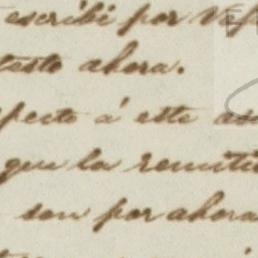 escribi por
testo ahora.
specto á este
que la remiti
son por ahora